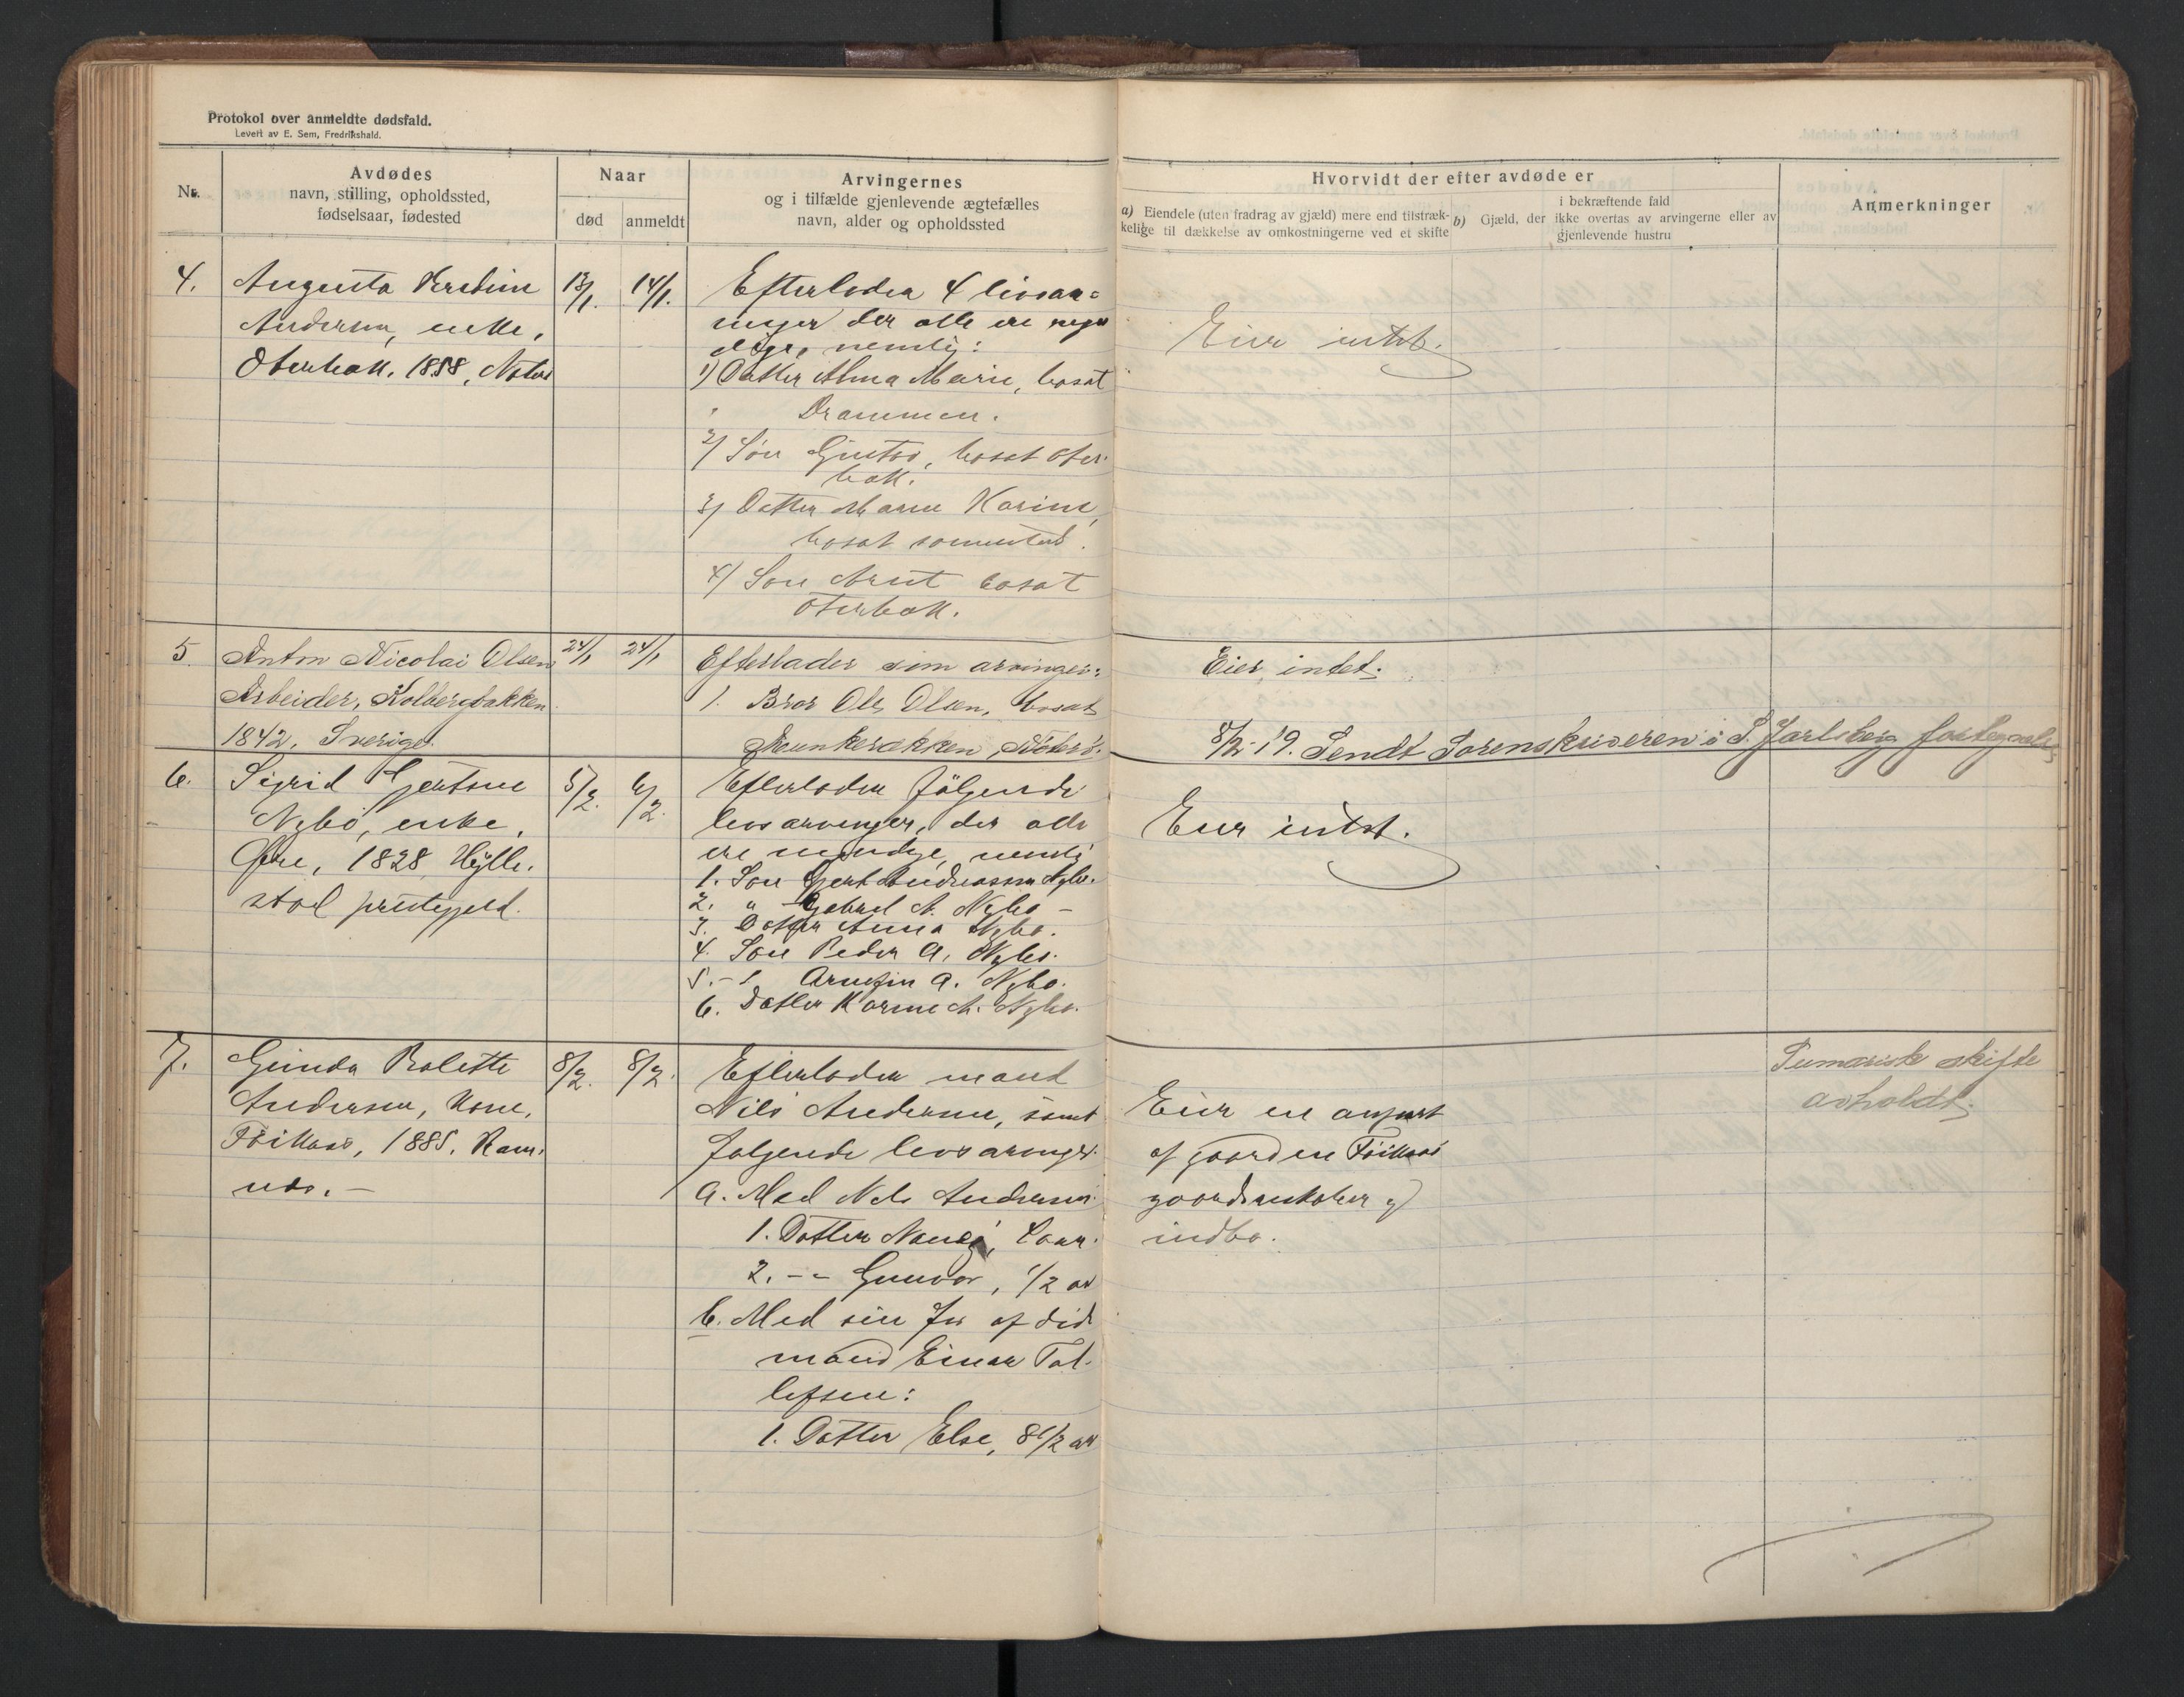 Protokol over anmeldte dødsfald.
Levert av E. Sem, Fredrikshald.
Nr.
Avdødes
navn, stilling, opholdssted,
fødselsaar, fødested
Naar
død
anmeldt
Arvingernes
og i tilfælde gjenlevende ægtefælles
navn, alder og opholdssted
Hvorvidt der efter avdøde er
a) Eiendele (uten fradrag av gjæld) mere end tilstræk-
kelige til dækkelse av omkostningerne ved et skifte
b) Gjæld, der
i bekræftende fald
ikke overtas av arvingerne eller av
gjenlevende hustru
Anmerkninger
4.
Augusta
Andersen, enke,
Oterbæk. 1858,
13/1.
14/1.
Efterlader 4 livsar=
vinger der alle ere myn
dige, nemlig:
1) Datter Alma Marie, bosat
Drammen.
2) Søn Gustav, bosat Oter-
bæk.
3) Datter Marie Karine,
bosat sammested.
4) Søn Arnt bosat
Oterbæk.
Eier intet.
5.
Anton Nicolai Olsen
Arbeider, Kolbergbakken
1842. Sverige.
24/1
24/1
Efterlader som arvinger:
1. Bror Ole Olsen, bosat
Munkerekken, Nøterø.
Eier intet.
8/2-19. Sendt Sorenskriveren i S. Jarlsberg
6.
Sigrid Gjertsen
Nybö, enke,
Øre, 1828, Hylle-
stad prestegjeld.
5/2.
6/2.
Efterlader følgende
livsarvinger, der alle
ere myndige, nemlig
1. Søn Gjert Andreassen Nybø.
2. " Gabriel A. Nybø -
3. Datter Anna Nybø.
4. Søn Peder A. Nybø.
5. - " A. Nybø.
6. Datter Karine A. Nybø.
Eier intet.
7.
Gunda Bolette
Andersen, Kone,
1885, Ram-
næs. -
8/2.
8/2.
Efterlader mand
Nils Andersen, samt
følgende livsarvinger.
a. Med Nils Andersen.
1. Datter
2. - " Gunvor, 1/2 aar
b. Med sin før afdøde
mand Einar Tol-
lefsen:
1. Datter Else, 8 1/2 aar
Eier en anpart
af gaarden
gaardsredskaber og
indbo.
Sumarisk skifte
avholdt.